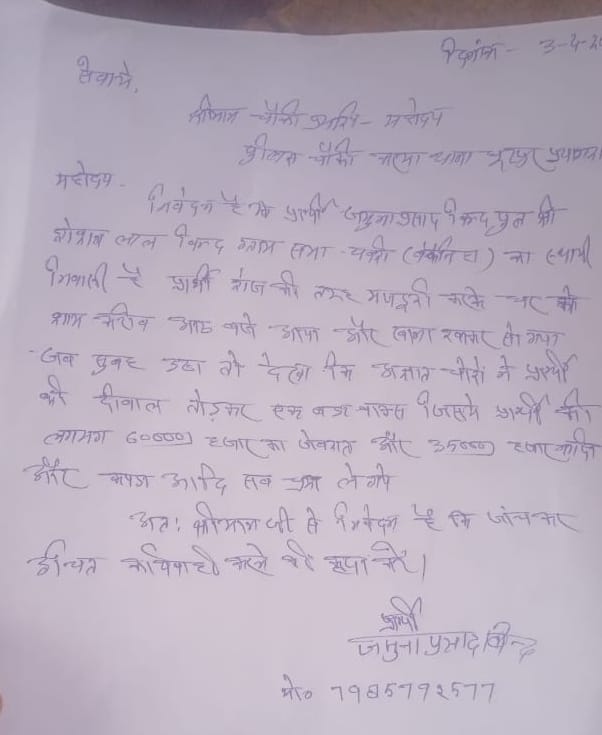 दिनांक - 3-4-20
सेवामे,
श्रीमान चौकी प्रभारी - महोदय
पुलिस चौकी थाना फूलपुर प्रयागराज
महोदय -
निवेदन है कि प्रार्थी जमुना प्रसाद बिन्द पुत्र श्री
लाल बिन्द ग्राम सभा - का स्थायी
निवासी है प्रार्थी रोज की तरह मजदूरी करके घर को
शाम करीब आठ बजे आया और खाना खाकर सो गया
जब सुबह उठा तो देखा कि अज्ञात चोरो ने प्रार्थी
की दीवाल तोड़कर एक बड़ा बाक्स जिसमे प्रार्थी की
लगभग 60000) हजार का जेवरात और 35000) हजार
और कपड़ा आदि सब चुरा ले गये
अतः श्रीमान जी से निवेदन है कि जांच कर
उचित कार्यवाही करने की कृपा करें।
प्रार्थी
जमुना प्रसाद बिन्द
मो० 7985792577